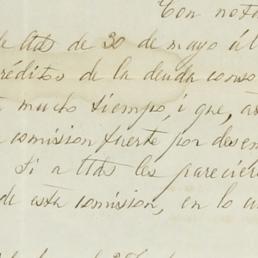 Con nota
de Uds de 30 de mayo ál
réditos de la deuda conso
mucho tiempo, i que, as
comision fuerte por desem
Si a Uds les pareciere
de esta comision, en lo